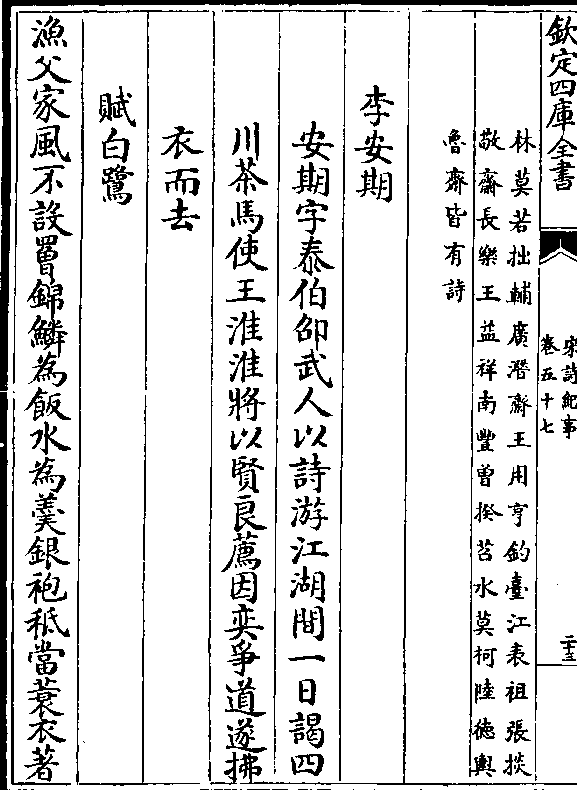 欽定四庫全書
宋詩紀事
卷五十七
二十三
林莫若拙輔廣潛齋王用亨釣臺江表祖張掞
敬齋長樂王益祥南豐曾揆苕水莫柯陸德輿
魯齋皆有詩
李安期
安期字泰伯邵武人以詩游江湖間一日謁四
川茶馬使王淮淮將以賢良薦因奕爭道遂拂
衣而去
賦白鷺
漁父家風不設罾錦鱗為飯水為羹銀袍秪當蓑衣著